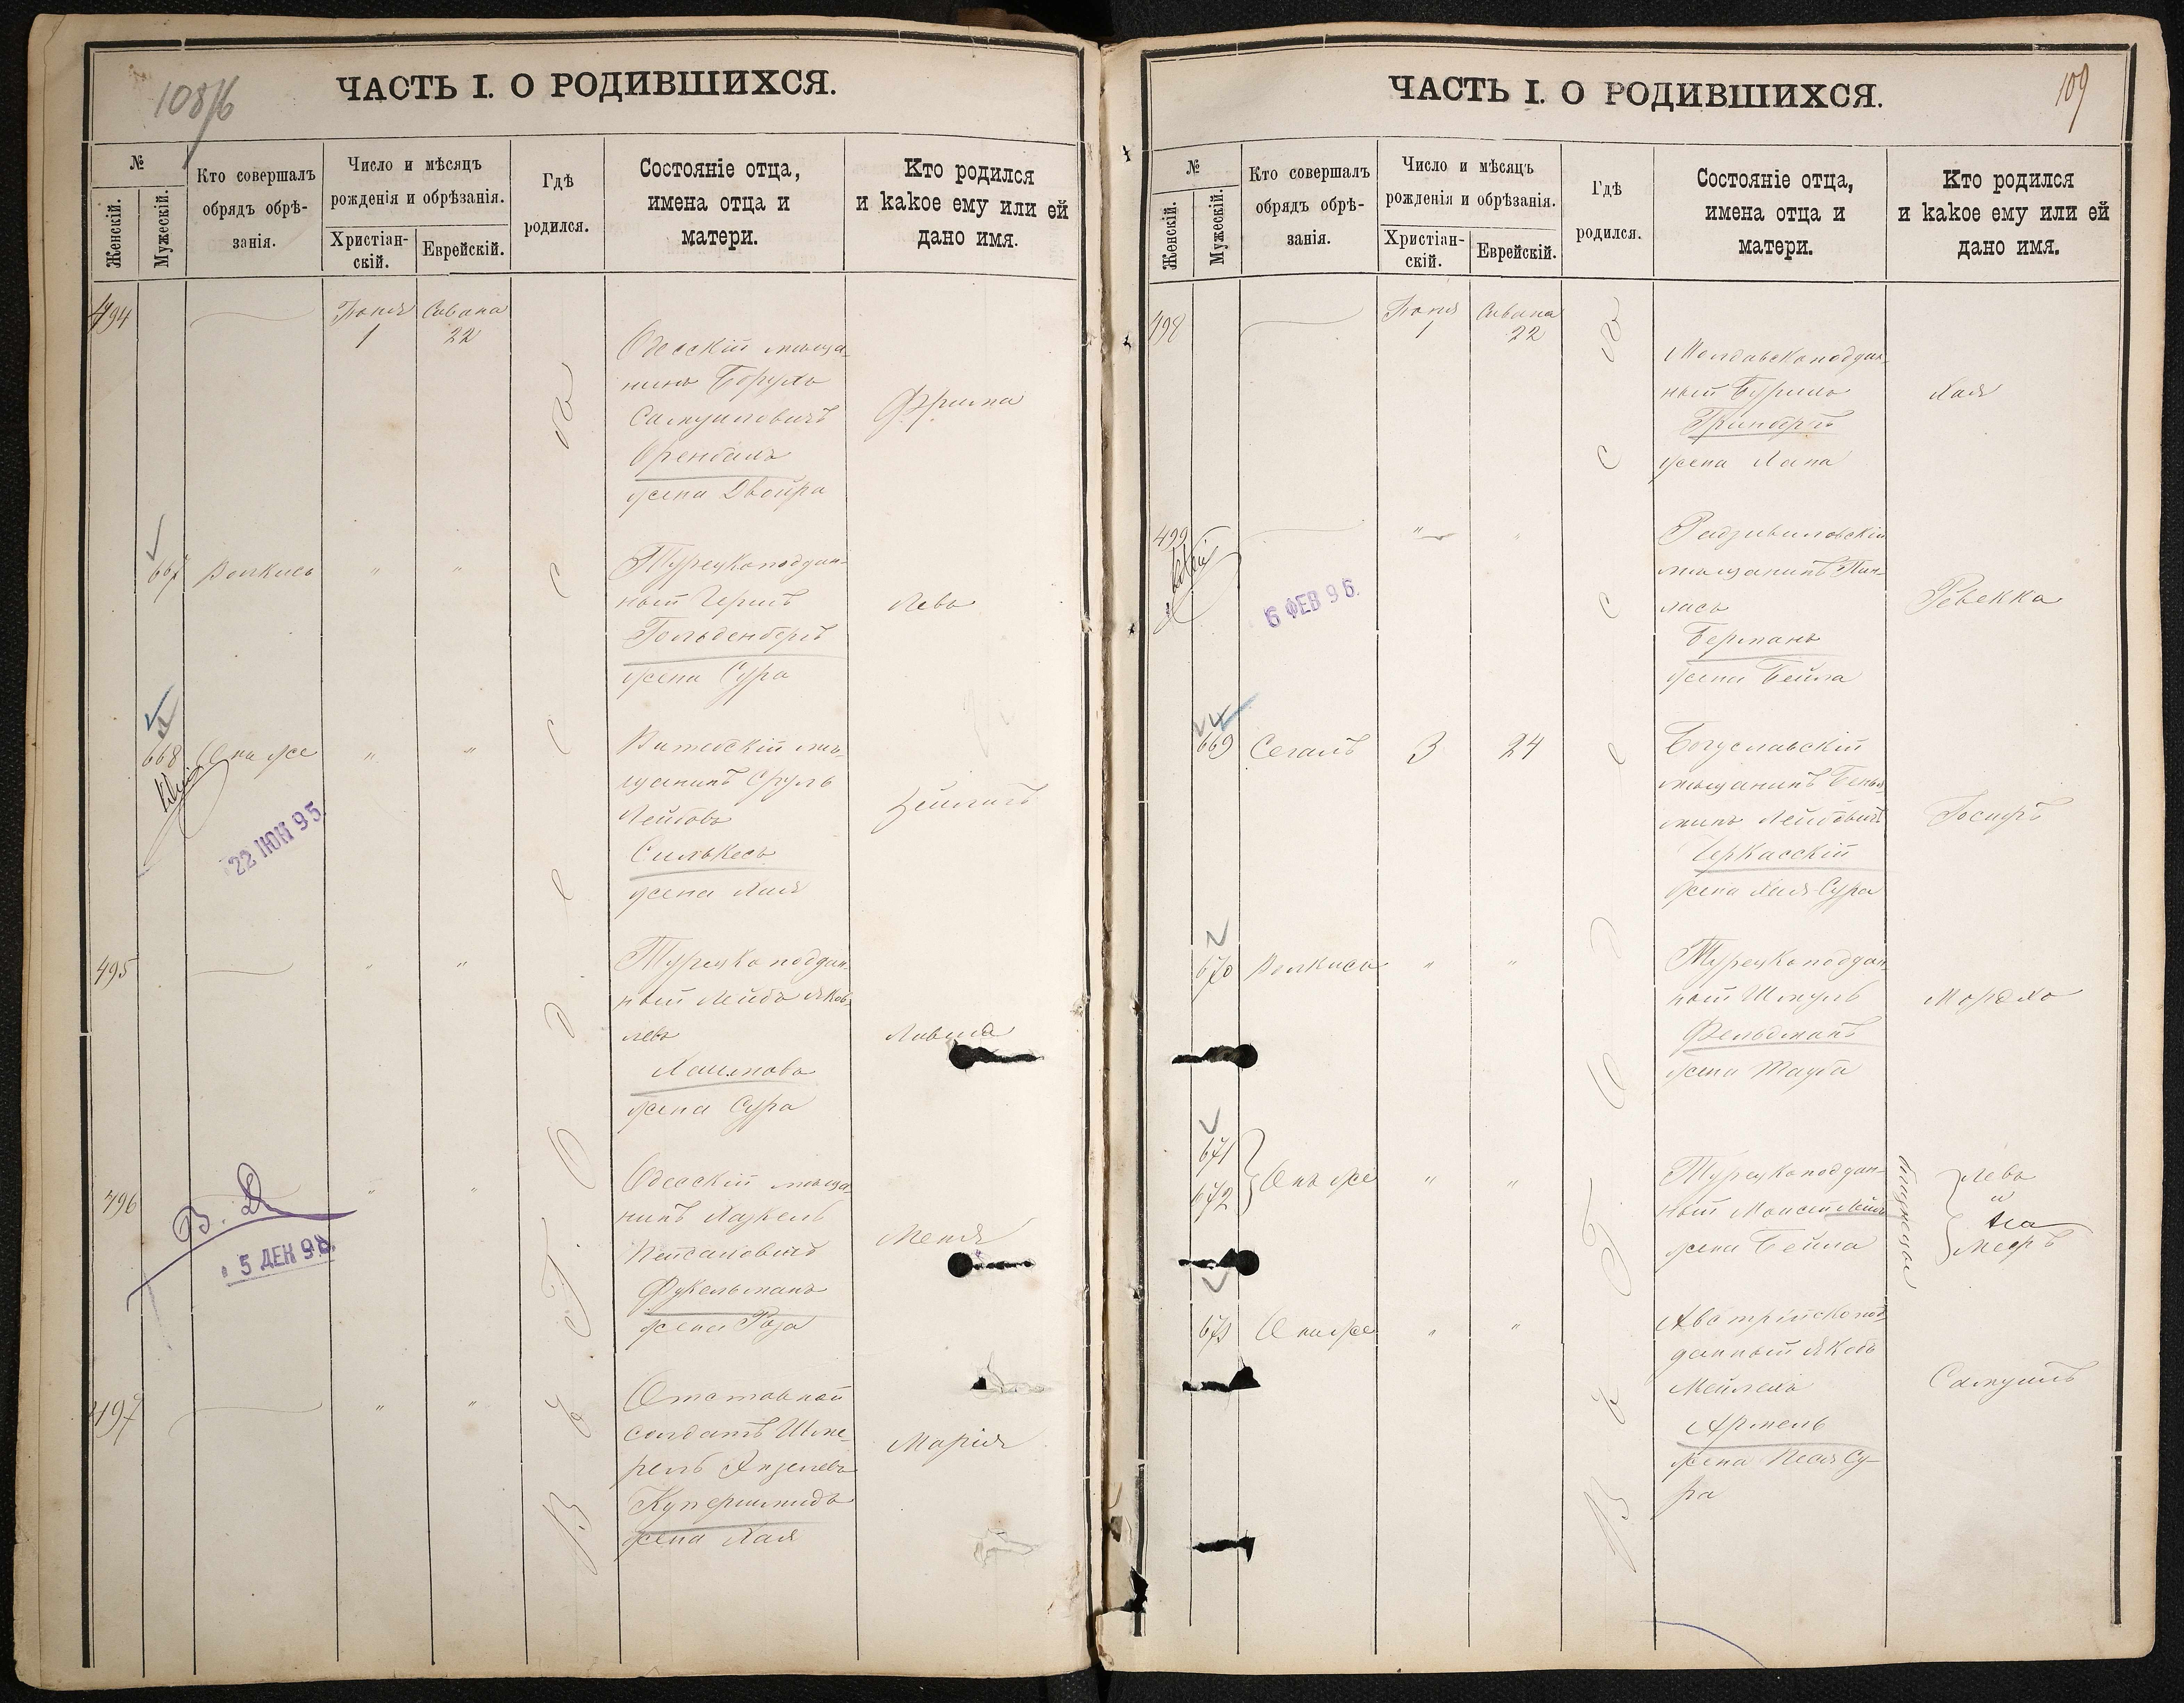 108/б
ЧАСТЬ I. О РОДИВШИХСЯ.
№
Женскій.
Мужескій.
Кто совершалъ
обрядъ обрѣ-
занія.
Число и мѣсяцъ
рожденія и обрѣзанія.
Христіан-
скій.
Еврейскій.
Гдѣ
родился.
Состояніе отца,
имена отца и
матери.
Кто родился
и какое ему или ей
дано имя.
494
Іюня
1
Сивана
22
Одесскій мѣща-
нинъ Борухъ
Самуиловичъ
жена Двойра
Фрима
667
Волкисъ
"
"
Турецкоподдан-
ный Гершъ
Гольденбергъ
жена Сура
Левъ
668
Онъ же
"
"
22 ІЮН 95.
Витебскій мѣ-
щанинъ Сруль
Лейбовъ
Силькесъ
жена Хая
Зейлигъ
495
"
"
Турецкоподдан-
ный Лейба Яков-
левъ
Хаимовъ
жена Сура
496
"
"
В. Д.
5 ДЕН 98.
Одесскій мѣща-
нинъ Хаскель
Пейсаховичъ
Фукельманъ
жена Роза
Меня
497
"
"
Отставной
солдатъ Шме-
рель Анзелевъ
Купершмидъ
жена Хая
Марія
Въ г. Одессѣ
109
ЧАСТЬ I. О РОДИВШИХСЯ.
№
Женскій.
Мужескій.
Кто совершалъ
обрядъ обрѣ-
занія.
Число и мѣсяцъ
рожденія и обрѣзанія.
Христіан-
скій.
Еврейскій.
Гдѣ
родился.
Состояніе отца,
имена отца и
матери.
Кто родился
и какое ему или ей
дано имя.
498
Іюня
1
Сивана
22
Молдавскоподдан-
ный Бурихъ
Гринбергъ
жена Хана
Хая
499
"
"
6 ФЕВ 96.
Радзивиловскій
мѣщанинъ Пин-
хасъ
Берманъ
жена Бейла
Ревекка
669
Сегалъ
3
24
Богуславскій
мѣщанинъ Бенья-
минъ Лейбовичъ
Черкасскій
жена Хая-Сура
Іосифъ
670
Волкисъ
"
"
Турецкоподдан-
ный Шмуль
Фельдманъ
жена Тауба
Мордхо
671
672
Онъ же
"
"
Турецкоподдан-
ный Моисей
жена Бейла
близнецы
Левъ
и
Мееръ
673
Онъ же
"
"
Австрійскопод-
данный Якобъ
Мейлехъ
Армель
жена Песя Су-
ра
Самуилъ
Въ г. Одессѣ